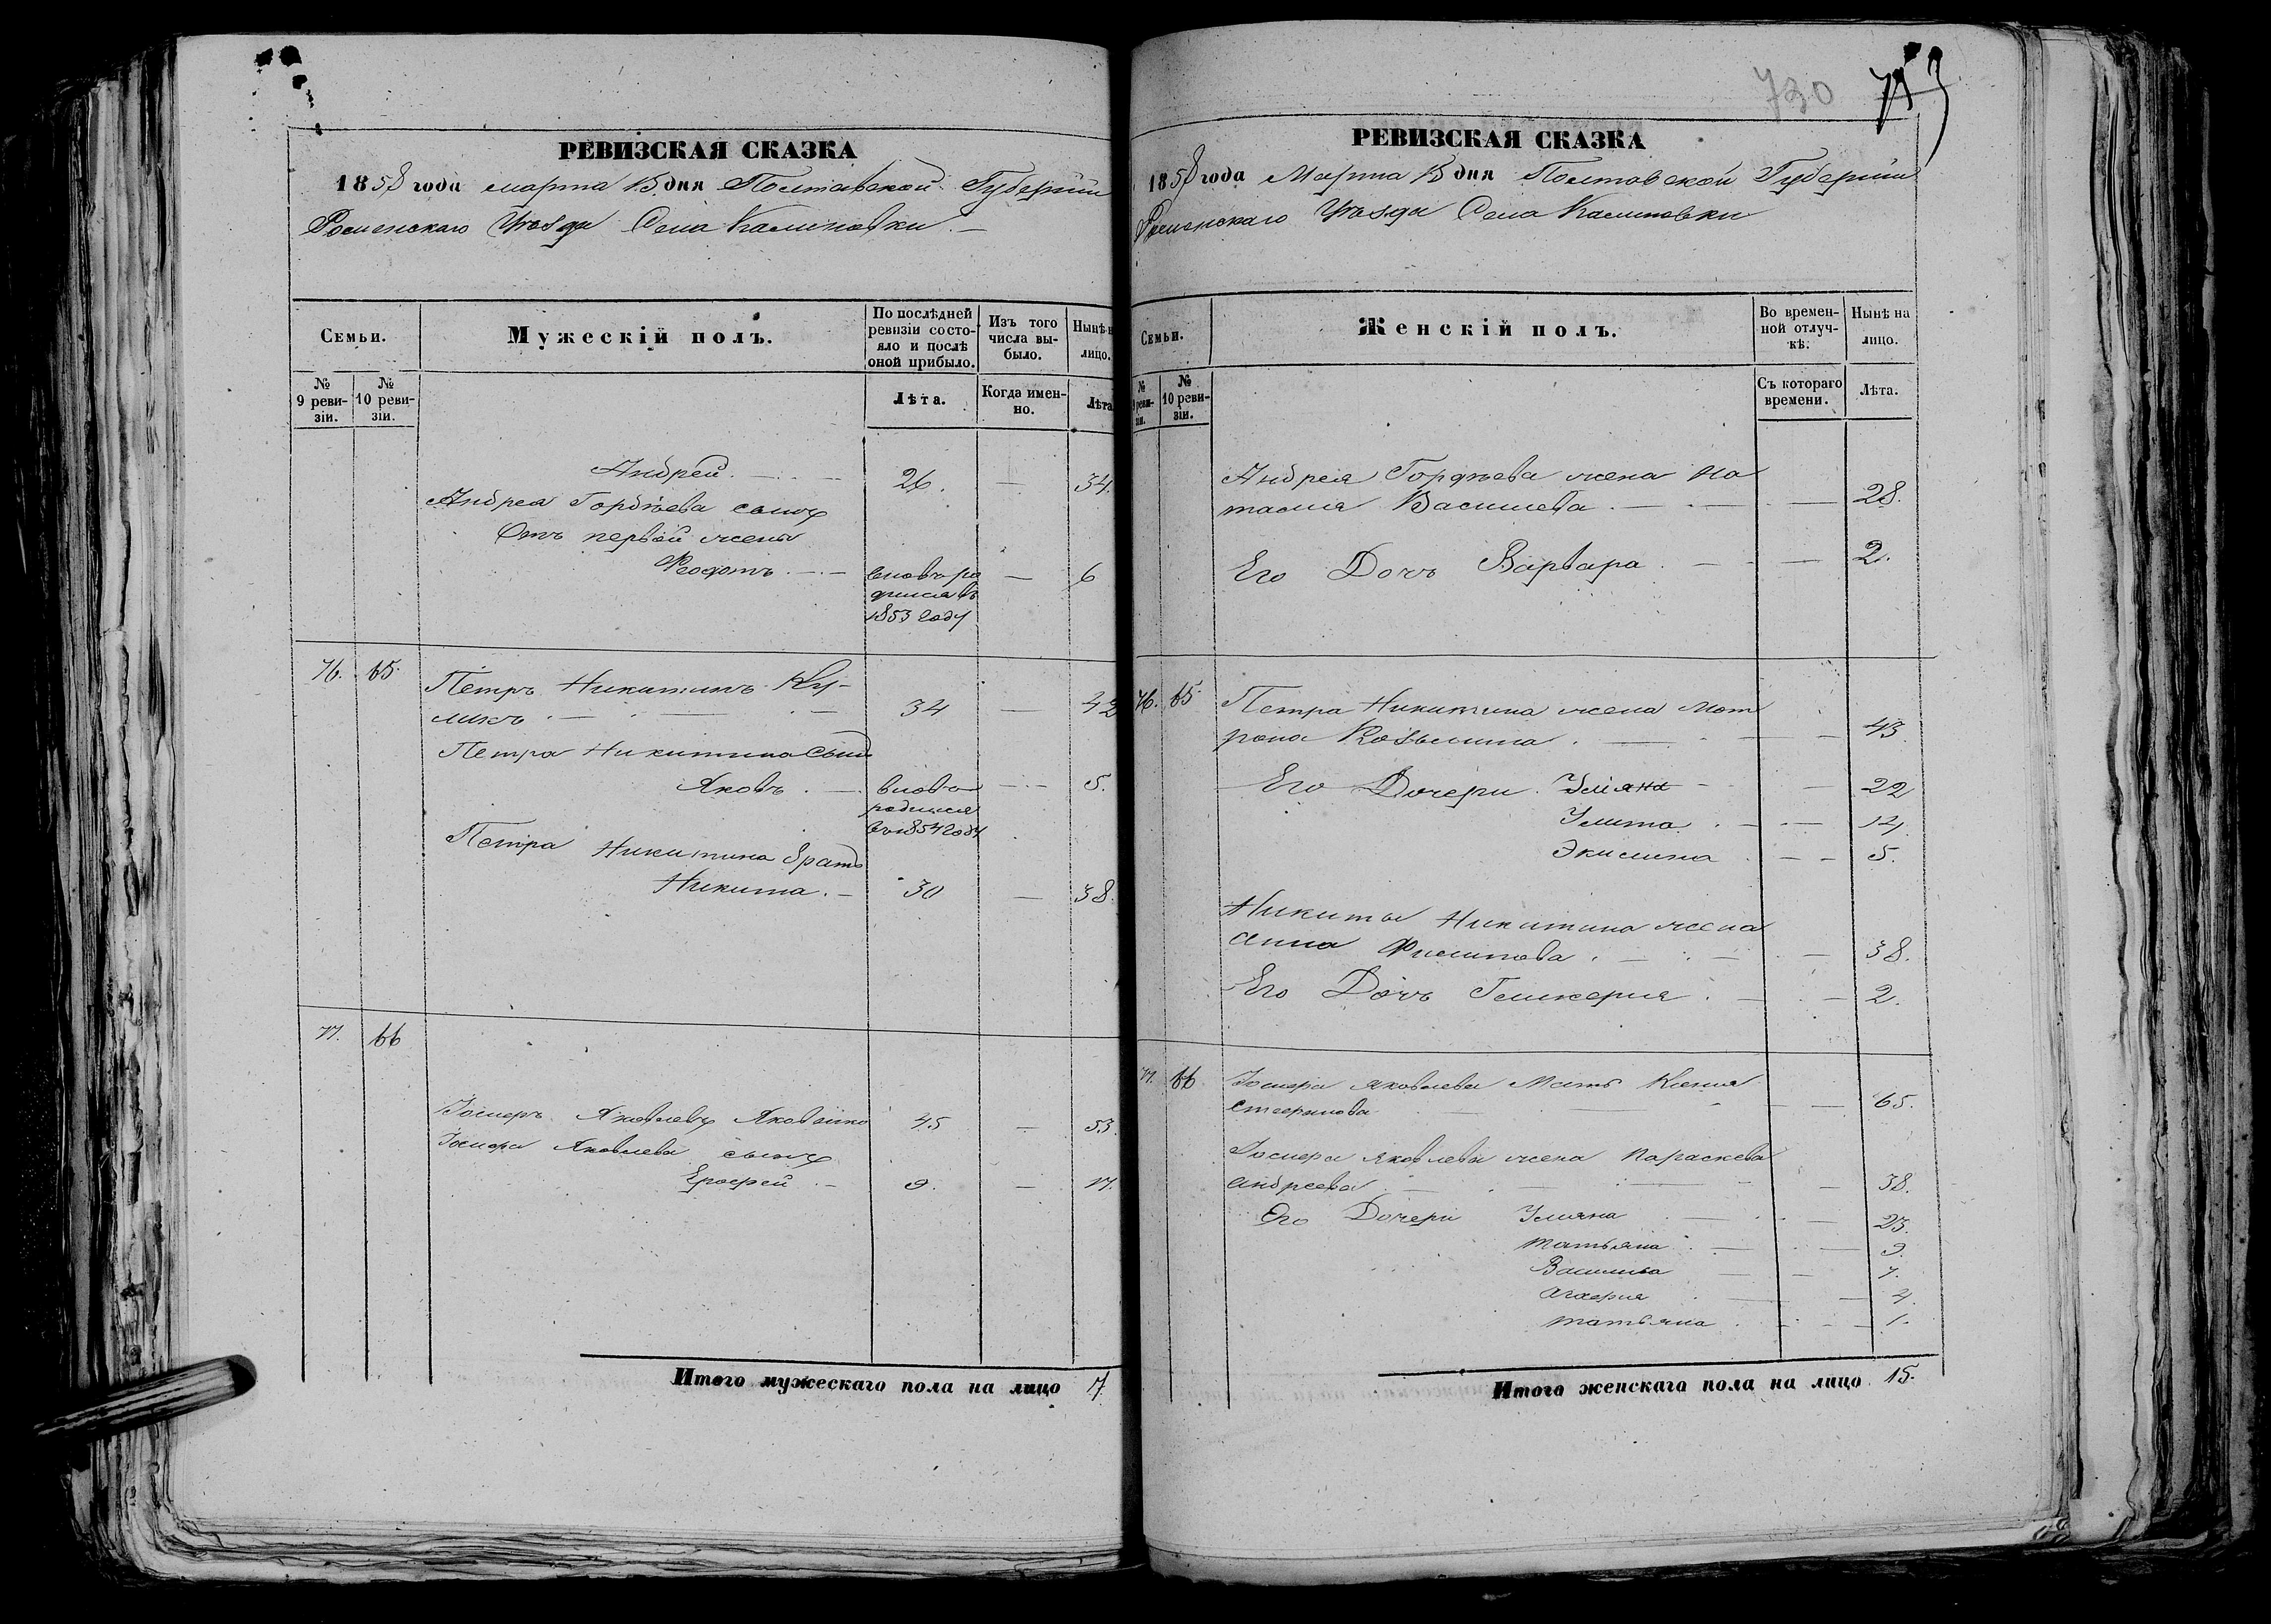 730
РЕВИЗСКАЯ СКАЗКА
1858 года марта 15 дня Полтавской Губерніи
Роменскаго Уѣзда Села Калиновки
Семьи.
Мужескій полъ.
По послѣдней ревизіи состояло и послѣ оной прибыло.
Изъ того числа выбыло.
Нынѣ н
лицо.
№ 9 ревизіи.
№ 10 ревизіи.
Лѣта.
Когда именно.
Лѣта
Андрей. 26. — 34.
Андрея Гордѣева сынъ
Отъ первой жены
Феодотъ — вновь ро — 6
дился въ
1853 году
76. 65. Петръ Никитинъ Ку-
ликъ — 34 — 42
Петра Никитина Сынъ
Яковъ — вновь — 5.
родился
въ 1854 году
Петра Никитина братъ
Никита. — 30 — 38.
77. 66
Яковлевъ Яковенко 45 — 53.
Яковлева сынъ
Ерофей — 9. — 17.
Итого мужескаго пола на лицо 7
РЕВИЗСКАЯ СКАЗКА
1858 года Марта 15 дня Полтавской Губерніи
Роменскаго Уѣзда Села Калиновки
Семьи.
Женскій полъ.
Во временной отлучкѣ.
Нынѣ на лицо.
№ 9 ревизіи.
№ 10 ревизіи.
Съ котораго времени.
Лѣта.
Андрея Гордѣева жена На
талія Васильева — 28.
Его Дочь Варвара — 2.
76. 65 Петра Никитина жена Мот
рона — 43
Его Дочери Ульяна — 22
Улита — 14.
Акилина — 5.
Никиты Никитина жена
Анна Филипова — 38.
Его Дочь Гликерия — 2.
77. 66 Яковлева Мать Ксения
— 65.
Яковлева жена Параскева
Андреева — 38.
Его Дочери Ульяна — 23.
Татьяна — 9.
Василиса — 7.
Агафия — 4.
Татьяна — 1.
Итого женскаго пола на лицо 15.